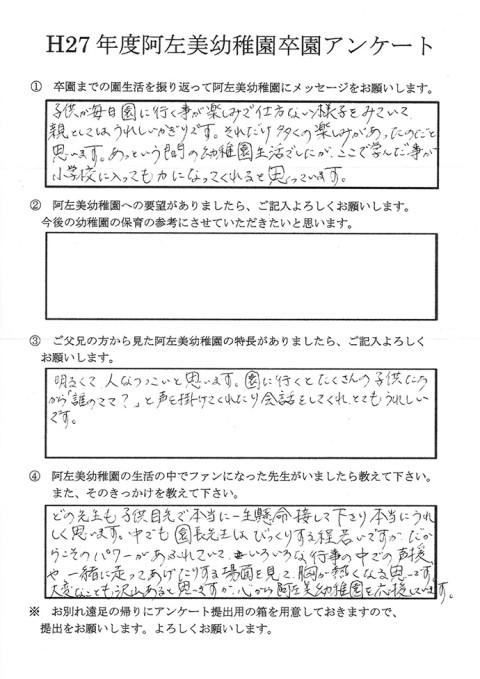 H27 年度阿左美幼稚園卒園アンケート
① 卒園までの園生活を振り返って阿左美幼稚園にメッセージをお願いします。
子供が毎日園に行く事が楽しみで仕方ない様子をみていて、
親としてはうれしいかぎりです。それだけ多くの楽しみがあったのだと
思います。あっという間の幼稚園生活でしたが、ここで学んだ事が
小学校に入っても力になってくれると思っています。
② 阿左美幼稚園への要望がありましたら、ご記入よろしくお願いします。
今後の幼稚園の保育の参考にさせていただきたいと思います。
③ ご父兄の方から見た阿左美幼稚園の特長がありましたら、ご記入よろしく
お願いします。
明るくて、人なつっこいと思います。園に行くとたくさんの子供たち
から「誰のママ?」と声を掛けてくれたり会話をしてくれとてもうれしい
です。
④ 阿左美幼稚園の生活の中でファンになった先生がいましたら教えて下さい。
また、そのきっかけを教えて下さい。
どの先生も子供目先で本当に一生懸命接して下さり本当にうれ
しく思います。中でも園長先生はびっくりする程若いですが、だか
らこそのパワーがあふれていて、いろいろな行事の中での声援
や一緒に走ってあげたりする場面を見て、胸が熱くなる思いです。
大変なことも沢山あると思いますが、心から阿左美幼稚園を応援しています。
※ お別れ遠足の帰りにアンケート提出用の箱を用意しておきますので、
提出をお願いします。よろしくお願いします。